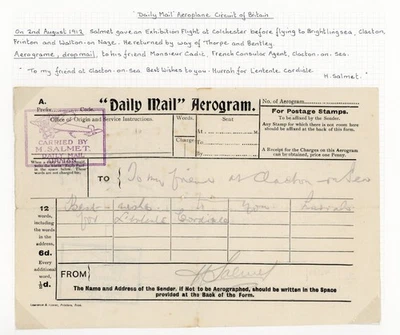 'Daily Mail' Aeroplane Circuit of Britain
On 2nd August 1912 Salmet gave an Exhibition Flight at Colchester before flying to Brightlingsea, Clacton,
Frinton and Walton-on-Naze. He returned by way of Thorpe and Bentley.
Aerograme, drop mail, to his friend Monsieur Cadic, French Consular Agent, Clacton-on-Sea.
"To my friend at Clacton-on-Sea. Best wishes to you. Hurrah for L'entente Cordiale.
H. Salmet."
A.
"Daily Mail" Aerogram.
No. of Aerogram
Code.
Office of Origin and Service Instructions.
Words.
Sent
For Postage Stamps.
To be affixed by the Sender.
Any Stamp for which there is not room here
should be affixed at the back of this form.
At
M.
Charge.
To
By
A Receipt for the Charges on this Aerogram
can be obtained, price one Penny.
CARRIED BY
M. SALMET.
DAILY MAIL
AIRMAN
TO
To my friend at Clacton-on-Sea
12
words,
including
the words
in the
address,
6d.
Every
additional
word,
½d.
Best wishes to you
for L'entente Cordiale
FROM
H Salmet
The Name and Address of the Sender, if Not to be Aerographed, should be written in the Space
provided at the Back of the Form.